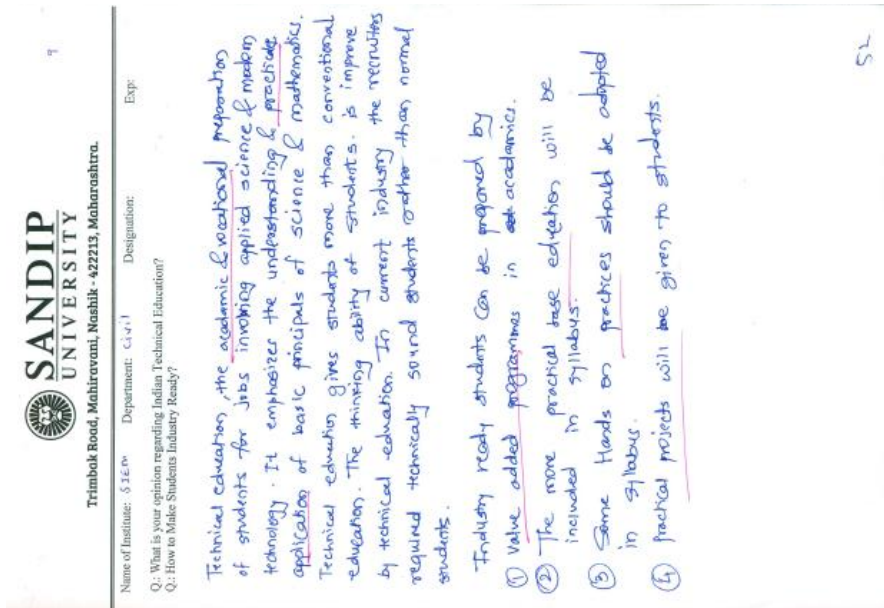 9
SANDIP
UNIVERSITY
Trimbak Road, Mahiravani, Nashik - 422213, Maharashtra.
Name of Institute: SIEM Department: Civil Designation: Exp:
Q.: What is your opinion regarding Indian Technical Education?
Q.: How to Make Students Industry Ready?
Technical education, the academic & vocational preparation
of students for jobs involving applied science & modern
technology. It emphasizes the understanding & practicale
application of basic principals of science & mathematics.
Technical education gives students more than conventional
education. The thinking ability of students. is improve
by technical eduation. In current industry the recruiters
required technically sound students rather than normal
students.
Industry ready students can be prepared by
① Value added programmes in academics.
② The more practical base education will be
included in syllabus.
③ Some Hands on practices should be adopted
in syllabus.
④ Practical projects will be given to students.
52